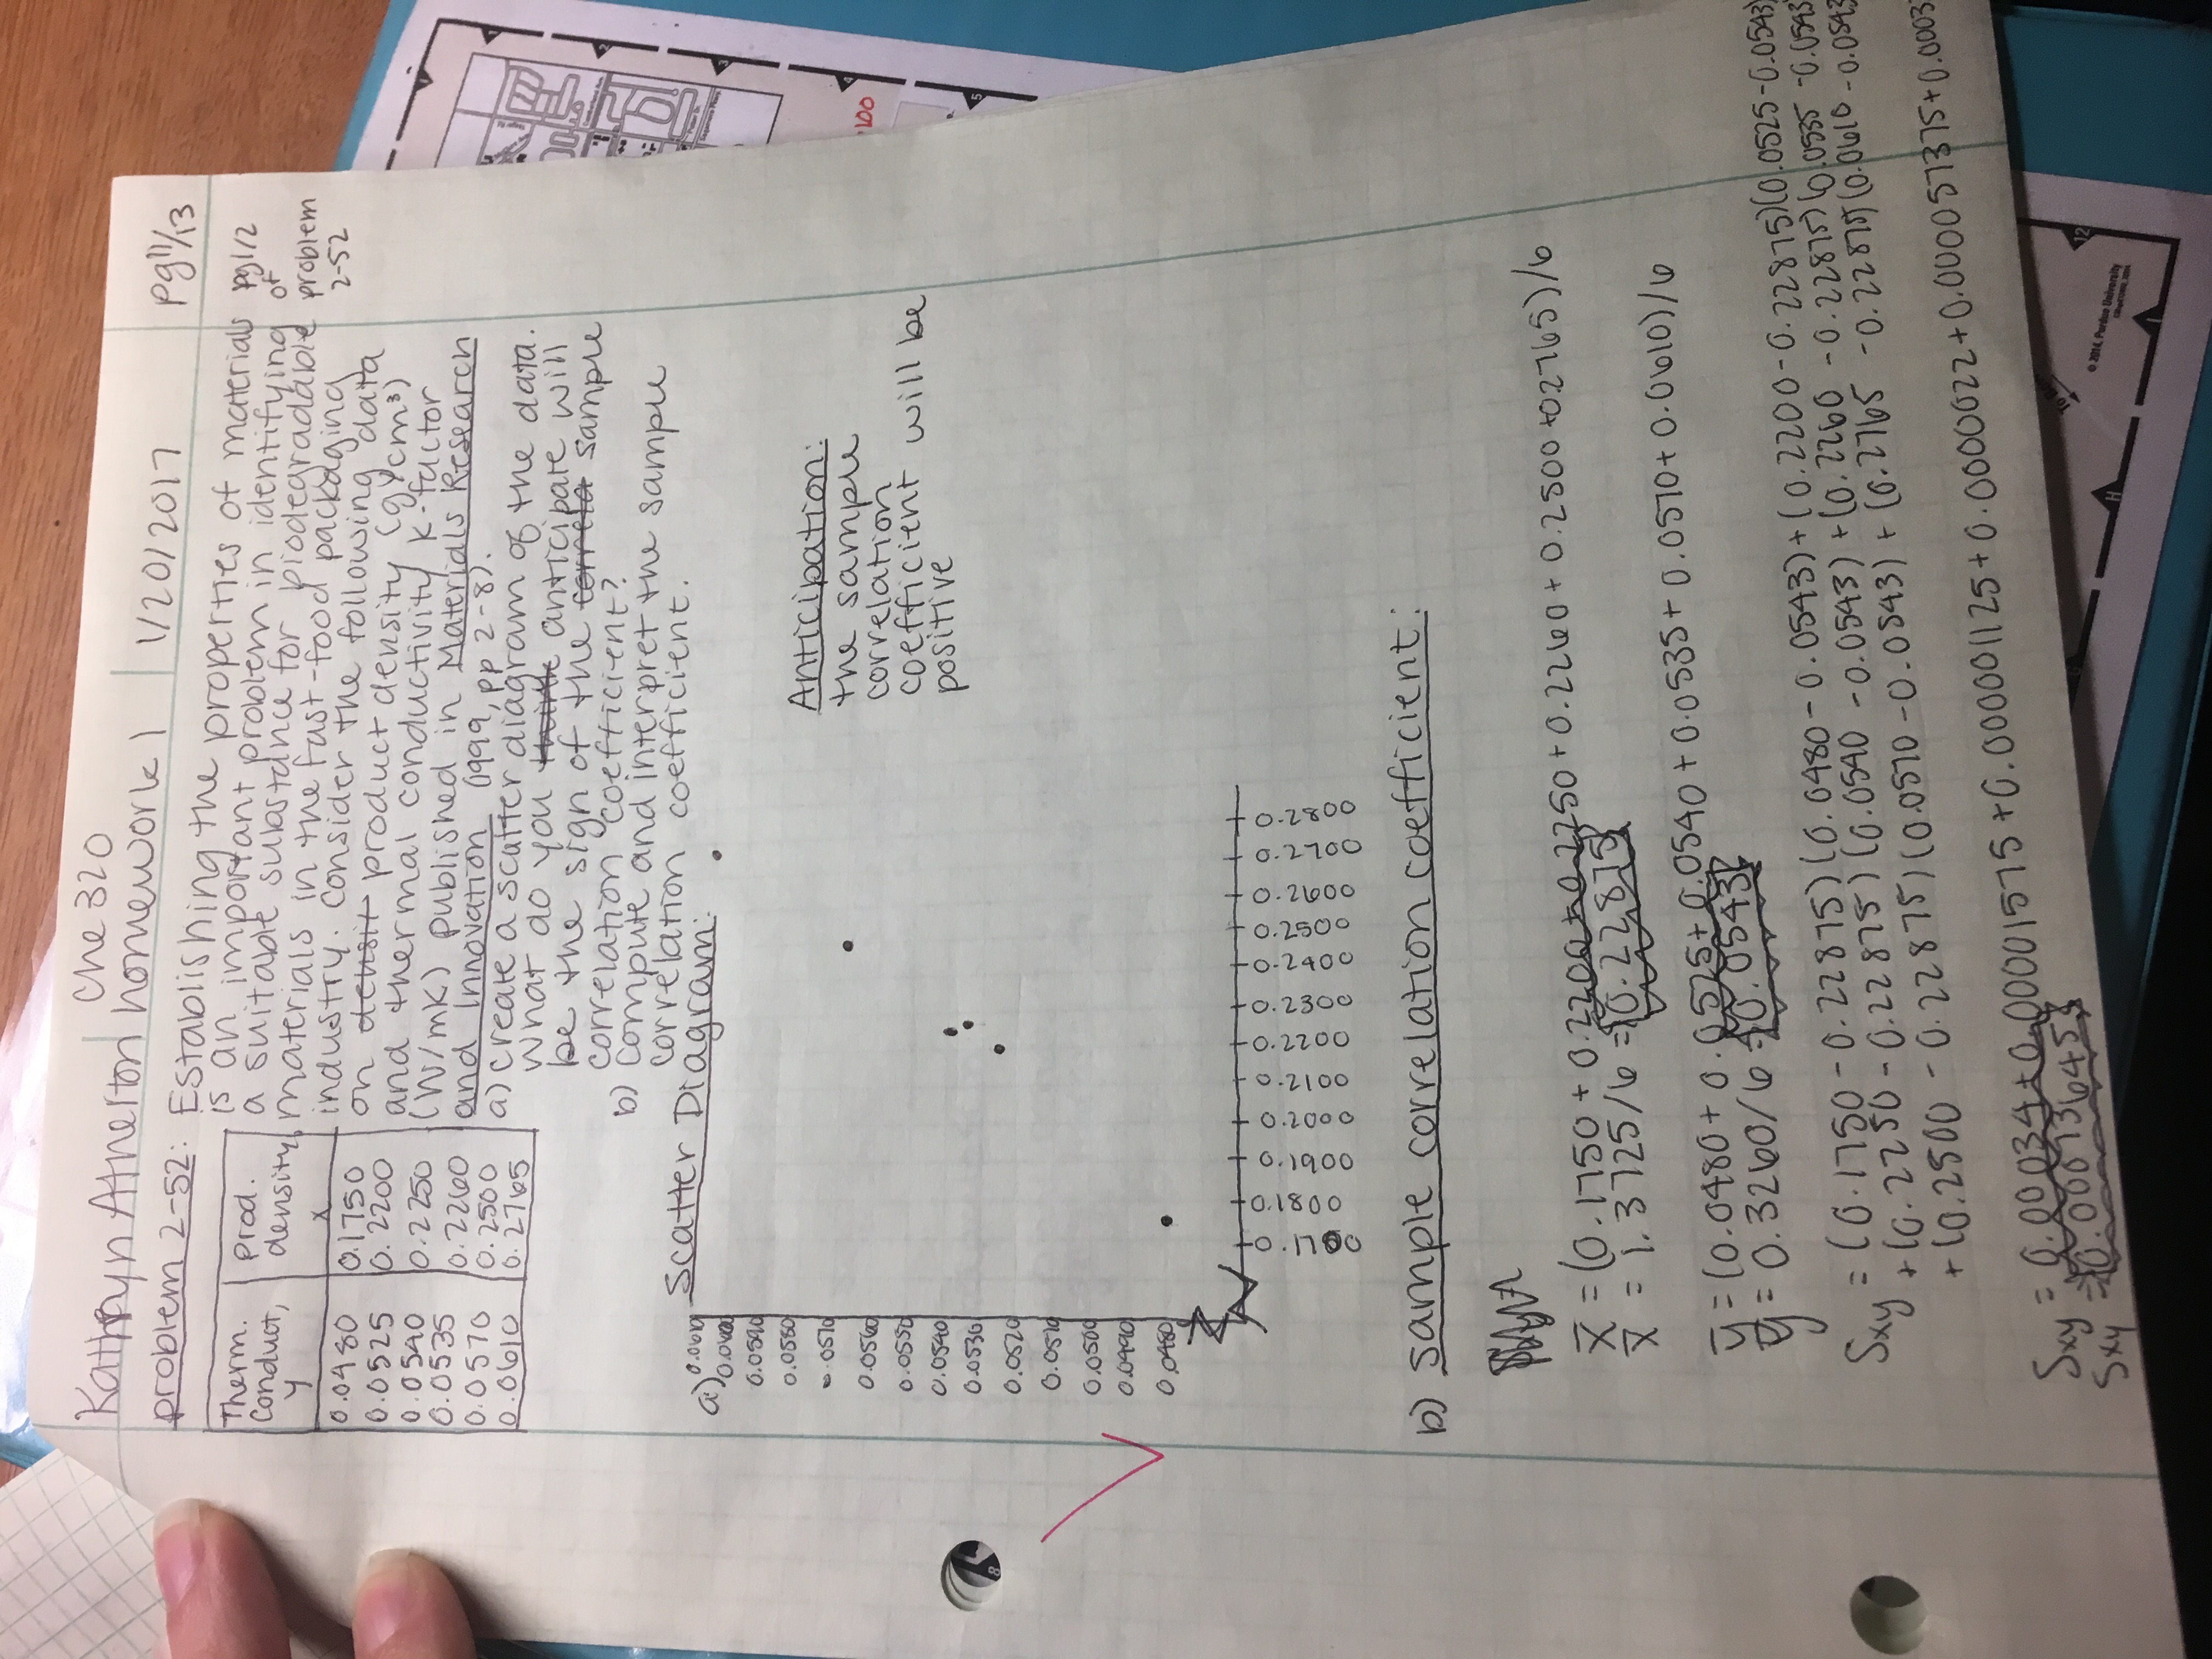 Kathryn Atherton
Che 320
homework 1
1/20/2017
pg 11/13
problem 2-52:
Establishing the properties of materials
is an important problem in identifying
a suitable substance for biodegradable
materials in the fast-food packaging
industry. Consider the following data
on densit product density (g/cm³)
and thermal conductivity K-factor
(W/mK) published in Materials Research
and Innovation (1999, pp 2-8).
a) create a scatter diagram of the data.
What do you think anticipate will
be the sign of the correla sample
correlation coefficient?
b) compute and interpret the sample
correlation coefficient.
pg 1/2
of
problem
2-52
Therm. Conduct, y
prod. density, x
0.0480 0.1750
0.0525 0.2200
0.0540 0.2250
0.0535 0.2260
0.0570 0.2500
0.0610 0.2765
a) Scatter Diagram:
0.0610
0.0600
0.0590
0.0580
0.0570
0.0560
0.0550
0.0540
0.0530
0.0520
0.0510
0.0500
0.0490
0.0480
0.1700
0.1800
0.1900
0.2000
0.2100
0.2200
0.2300
0.2400
0.2500
0.2600
0.2700
0.2800
Anticipation:
the sample
correlation
coefficient will be
positive
b) sample correlation coefficient:
x̄ = (0.1750 + 0.2200 + 0.2250 + 0.2260 + 0.2500 + 0.2765)/6
x̄ = 1.3725/6 = 0.22875
ȳ = (0.0480 + 0.0525 + 0.0540 + 0.0535 + 0.0570 + 0.0610)/6
ȳ = 0.3260/6 = 0.0543
Sxy = (0.1750 - 0.22875)(0.0480 - 0.0543) + (0.2200 - 0.22875)(0.0525 - 0.0543)
+ (0.2250 - 0.22875)(0.0540 - 0.0543) + (0.2260 - 0.22875)(0.0535 - 0.0543
+ (0.2500 - 0.22875)(0.0570 - 0.0543) + (0.2765 - 0.22875)(0.0610 - 0.0543
Sxy = 0.00034 + 0.00001575 + 0.000001125 + 0.0000022 + 0.000057375 + 0.0003
Sxy = 0.000736455
100
1
2
3
4
5
8
12
H
I
© 2014, Purdue University